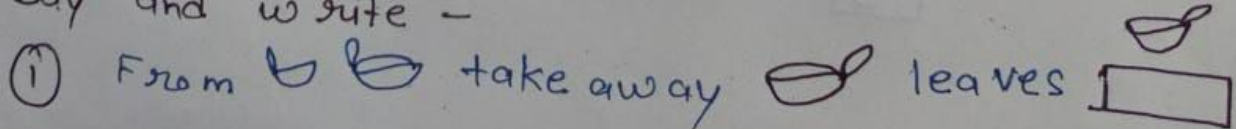 and write -
(i) From take away leaves